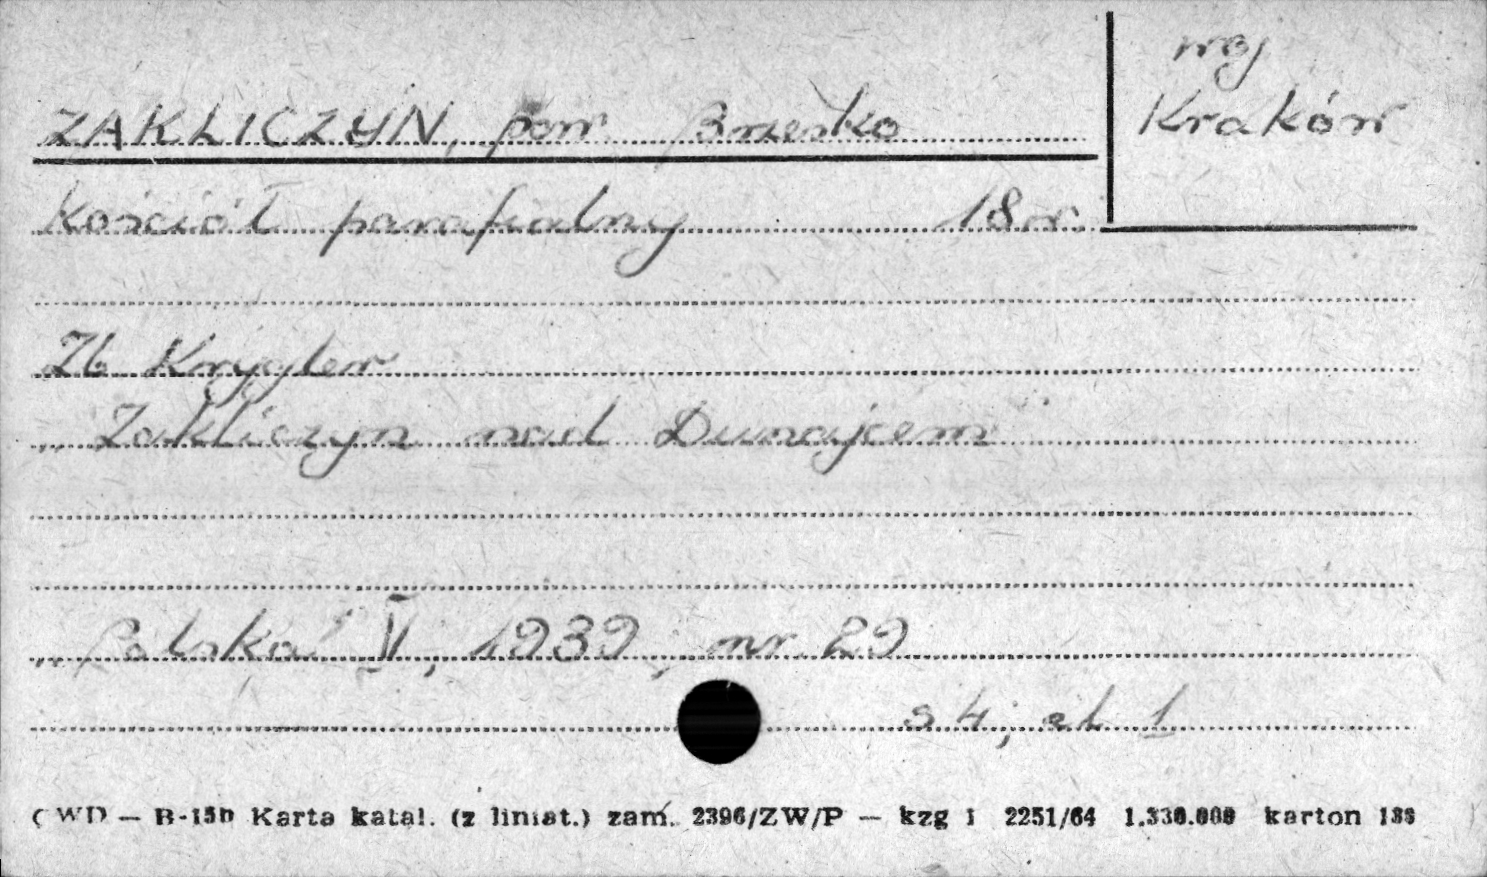 woj
Kraków
ZAKLICZYN, pow Brzesko
Kościół parafialny 18 w.
Zb Krygler
„Zakliczyn nad Dunajcem"
„Polska" V, 1939, nr 29
s 4, il 1
CWD — B-15b Karta katal. (z liniat.) zam. 2396/ZW/P — kzg 1 2251/64 1.330.000 karton